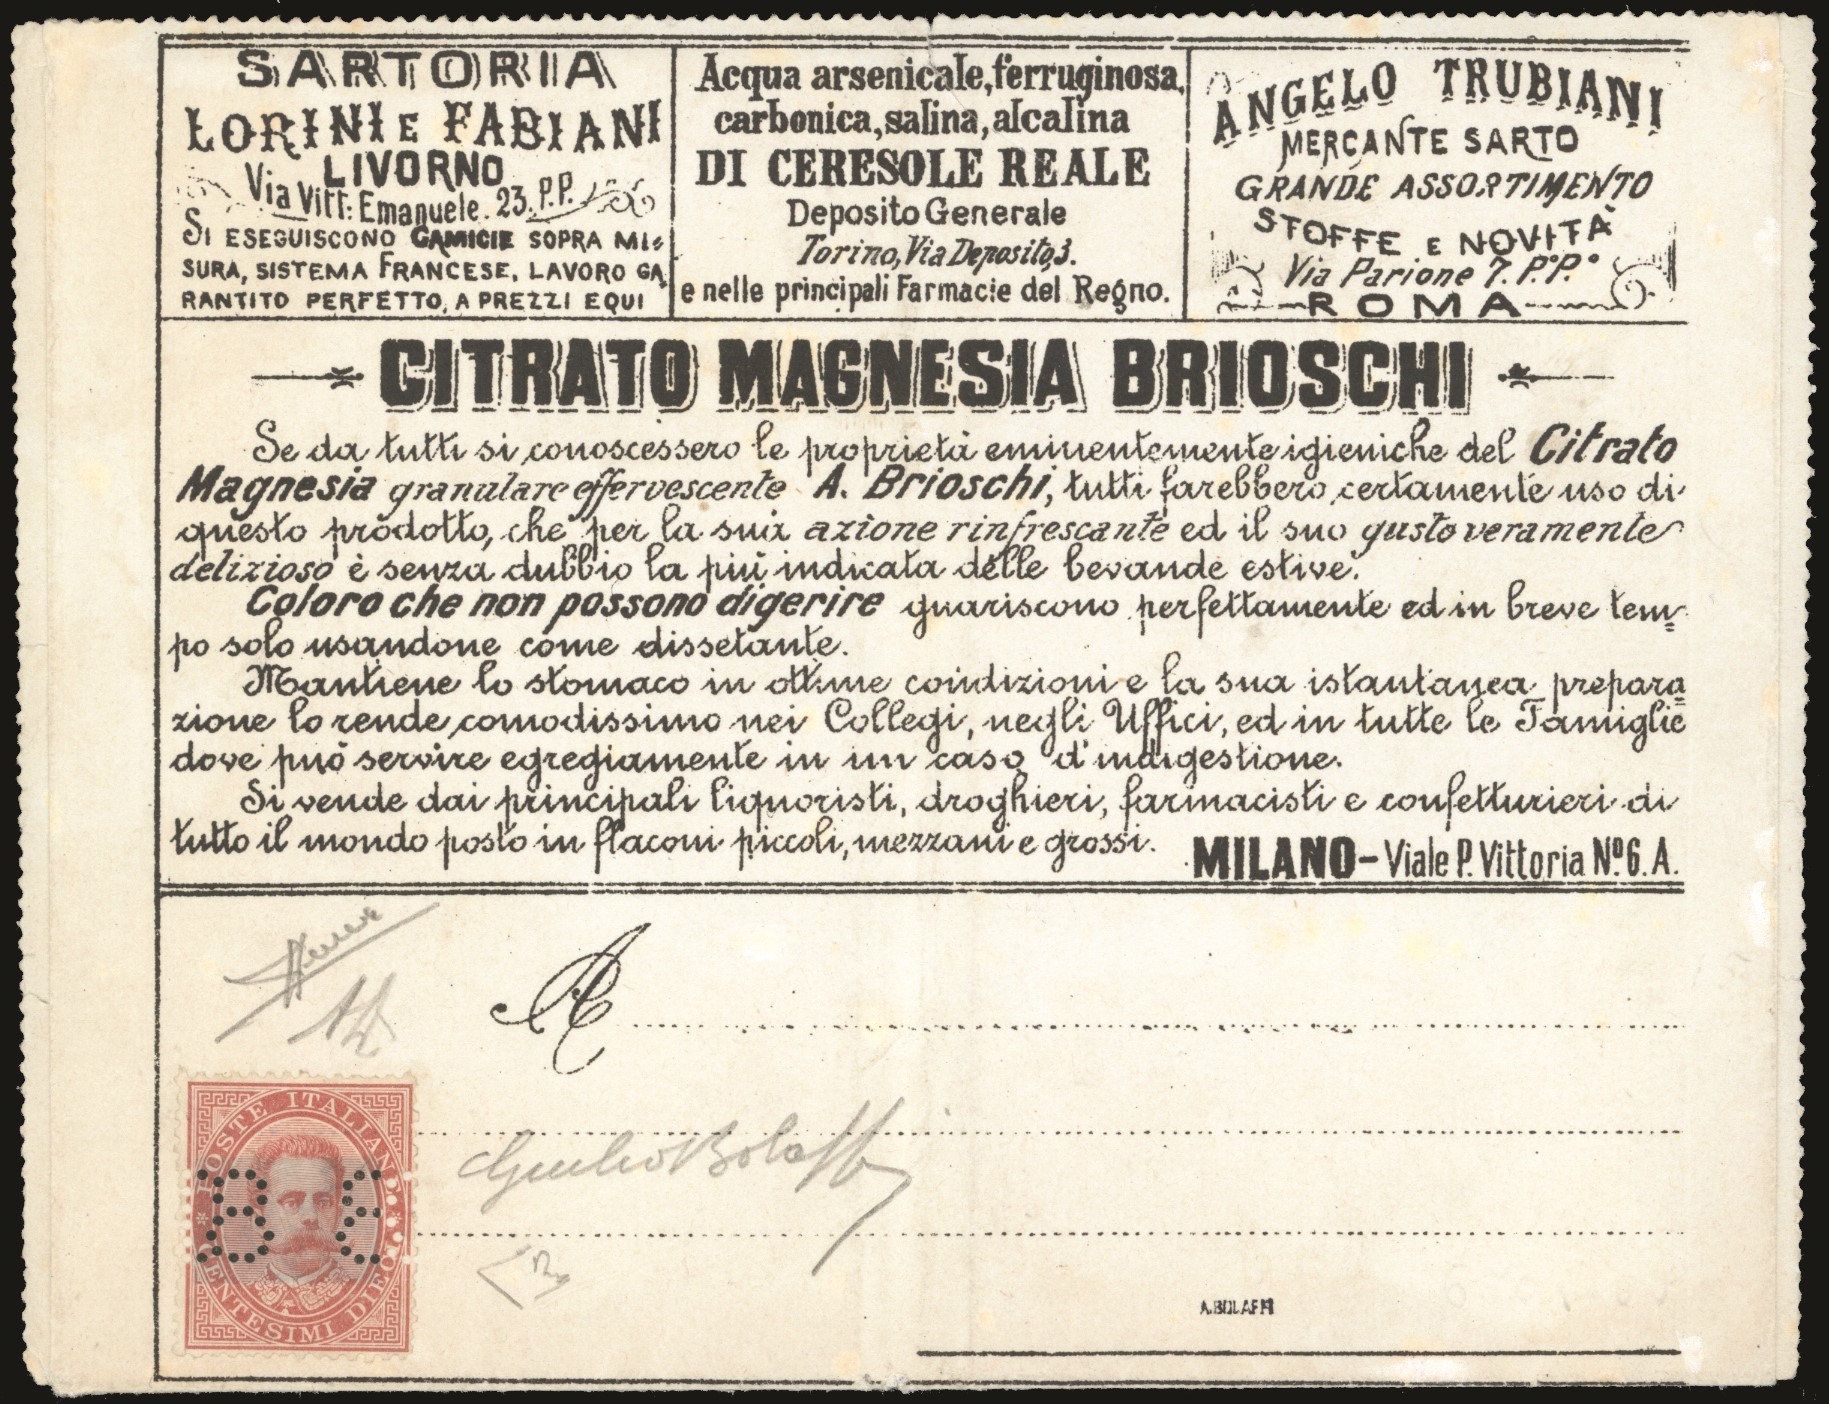 SARTORIA
LORINI E FABIANI
LIVORNO
Via Vitt: Emanuele. 23. P.P.
SI ESEGUISCONO CAMICIE SOPRA MI=
SURA, SISTEMA FRANCESE, LAVORO GA
RANTITO PERFETTO, A PREZZI EQUI
Acqua arsenicale, ferruginosa,
carbonica, salina, alcalina
DI CERESOLE REALE
Deposito Generale
Torino, Via Deposito, 3.
e nelle principali Farmacie del Regno.
ANGELO TRUBIANI
MERCANTE SARTO
GRANDE ASSORTIMENTO
STOFFE E NOVITÀ
Via Parione 7. P.º P.º
ROMA
CITRATO MAGNESIA BRIOSCHI
Se da tutti si conoscessero le proprietà eminentemente igieniche del Citrato
Magnesia granulare effervescente A. Brioschi, tutti farebbero certamente uso di
questo prodotto, che per la sua azione rinfrescante ed il suo gusto veramente
delizioso è senza dubbio la più indicata delle bevande estive.
Coloro che non possono digerire guariscono perfettamente ed in breve tem=
po solo usandone come dissetante.
Mantiene lo stomaco in ottime condizioni e la sua istantanea prepara=
zione lo rende comodissimo nei Collegi, negli Uffici, ed in tutte le Famiglie
dove può servire egregiamente in un caso d'indigestione.
Si vende dai principali liquoristi, droghieri, farmacisti e confetturieri di
tutto il mondo posto in flaconi piccoli, mezzani e grossi.
MILANO - Viale P. Vittoria Nº 6. A.
A
POSTE ITALIANE
CENTESIMI DIECI
Giulio Bolaffi
A. BOLAFFI